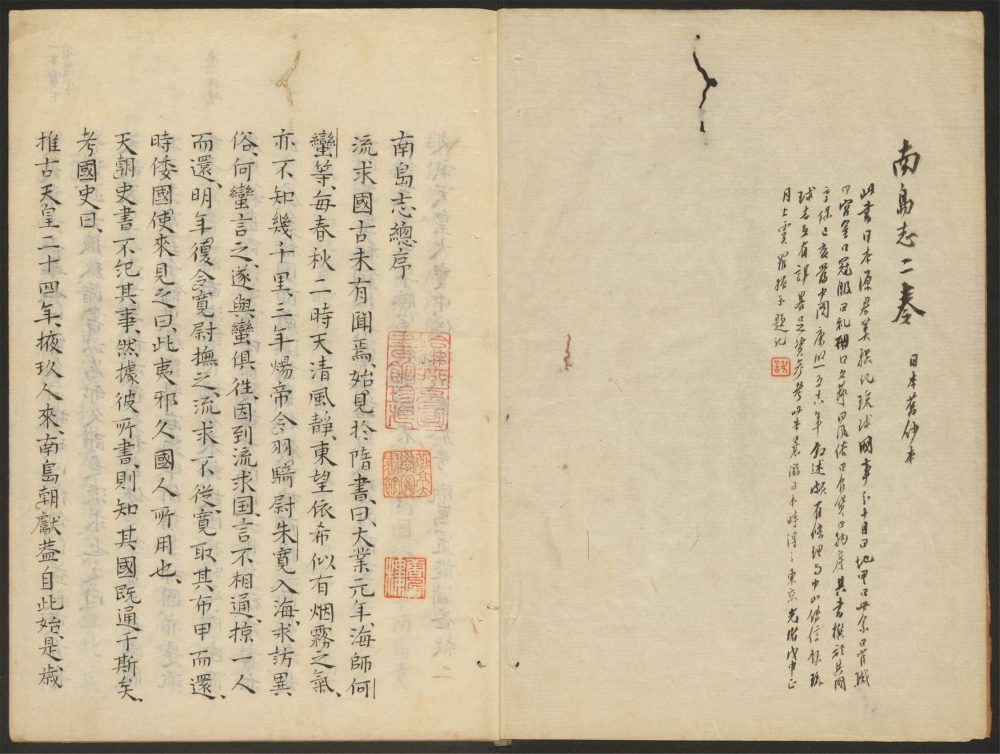 南島志二卷 日本舊鈔本
此書日本源君美撰記琉球國事分十目曰地理曰世系曰官職
曰宮室曰冠服曰礼刑曰文藝曰風俗曰食貨曰物產其書撰於其國
享保己亥當中國康熙五十八年敘述頗有條理與中山傳信錄琉
球志互有詳畧足資參考此本曩游日本時得之東京光緒戊申正
月上虞羅振玉題記
南島志總序
流求國古未有聞焉、始見於隋書、曰大業元年、海師何
蠻等、每春秋二時天清風靜、東望依希似有烟霧之氣、
亦不知幾千里、三年煬帝令羽騎尉朱寬入海、求訪異
俗、何蠻言之、遂與蠻俱往、因到流求国、言不相通、掠一人
而還、明年復令寬尉撫之、流求不從、寬取其布甲而還、
時倭國使來見之曰、此夷邪久國人所用也、
天朝史書不紀其事、然據彼所書、則知其國既通于斯矣、
考國史曰、
推古天皇二十四年、掖玖人來、南島朝獻蓋自此始、是歲